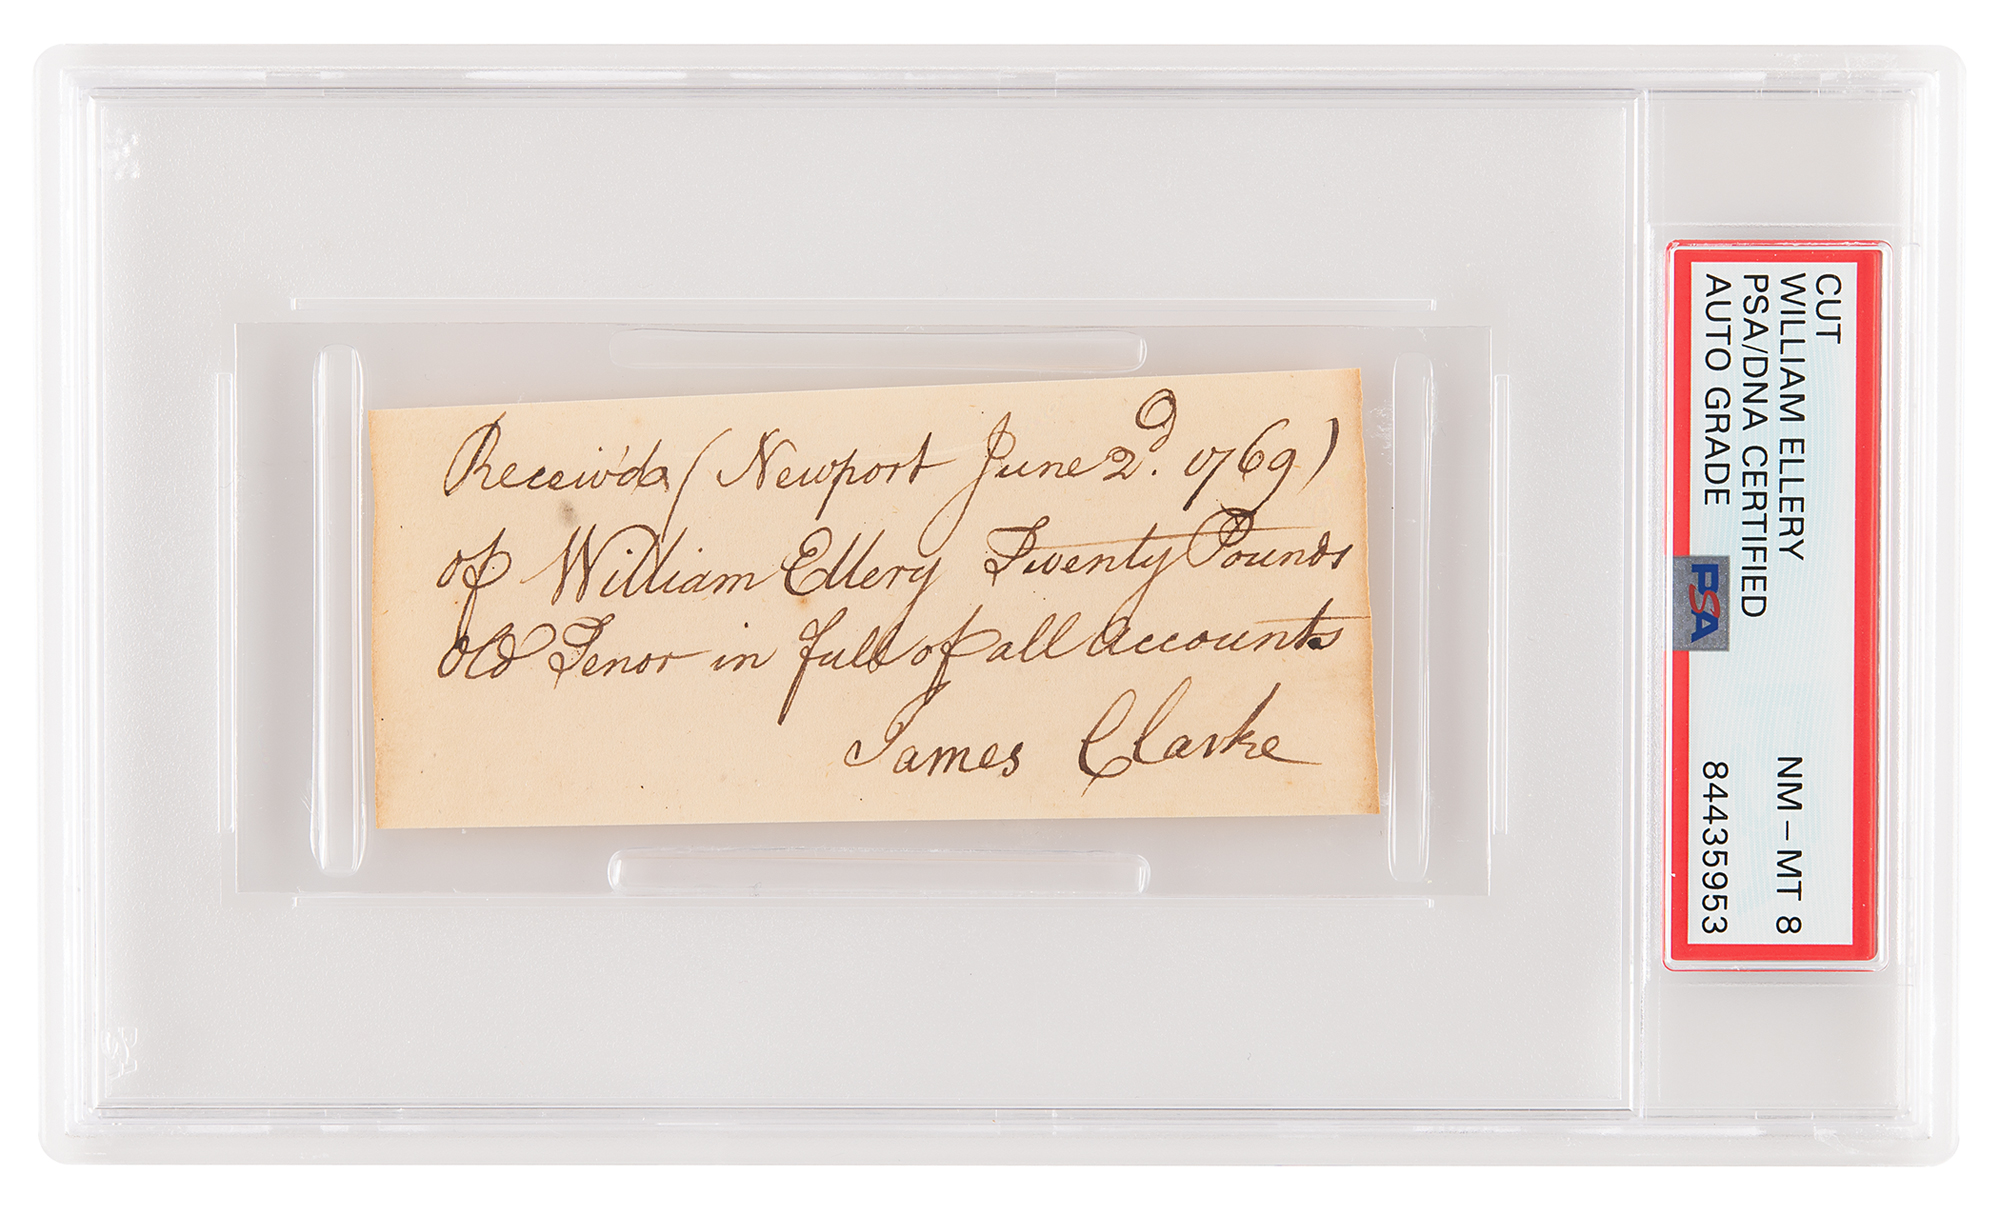 Receiv'd (Newport June 2d. 1769)
of William Ellery Twenty Pounds
old Tenor in full of all Accounts
James Clarke
CUT
WILLIAM ELLERY
PSA/DNA CERTIFIED
AUTO GRADE
NM-MT 8
84435953
PSA